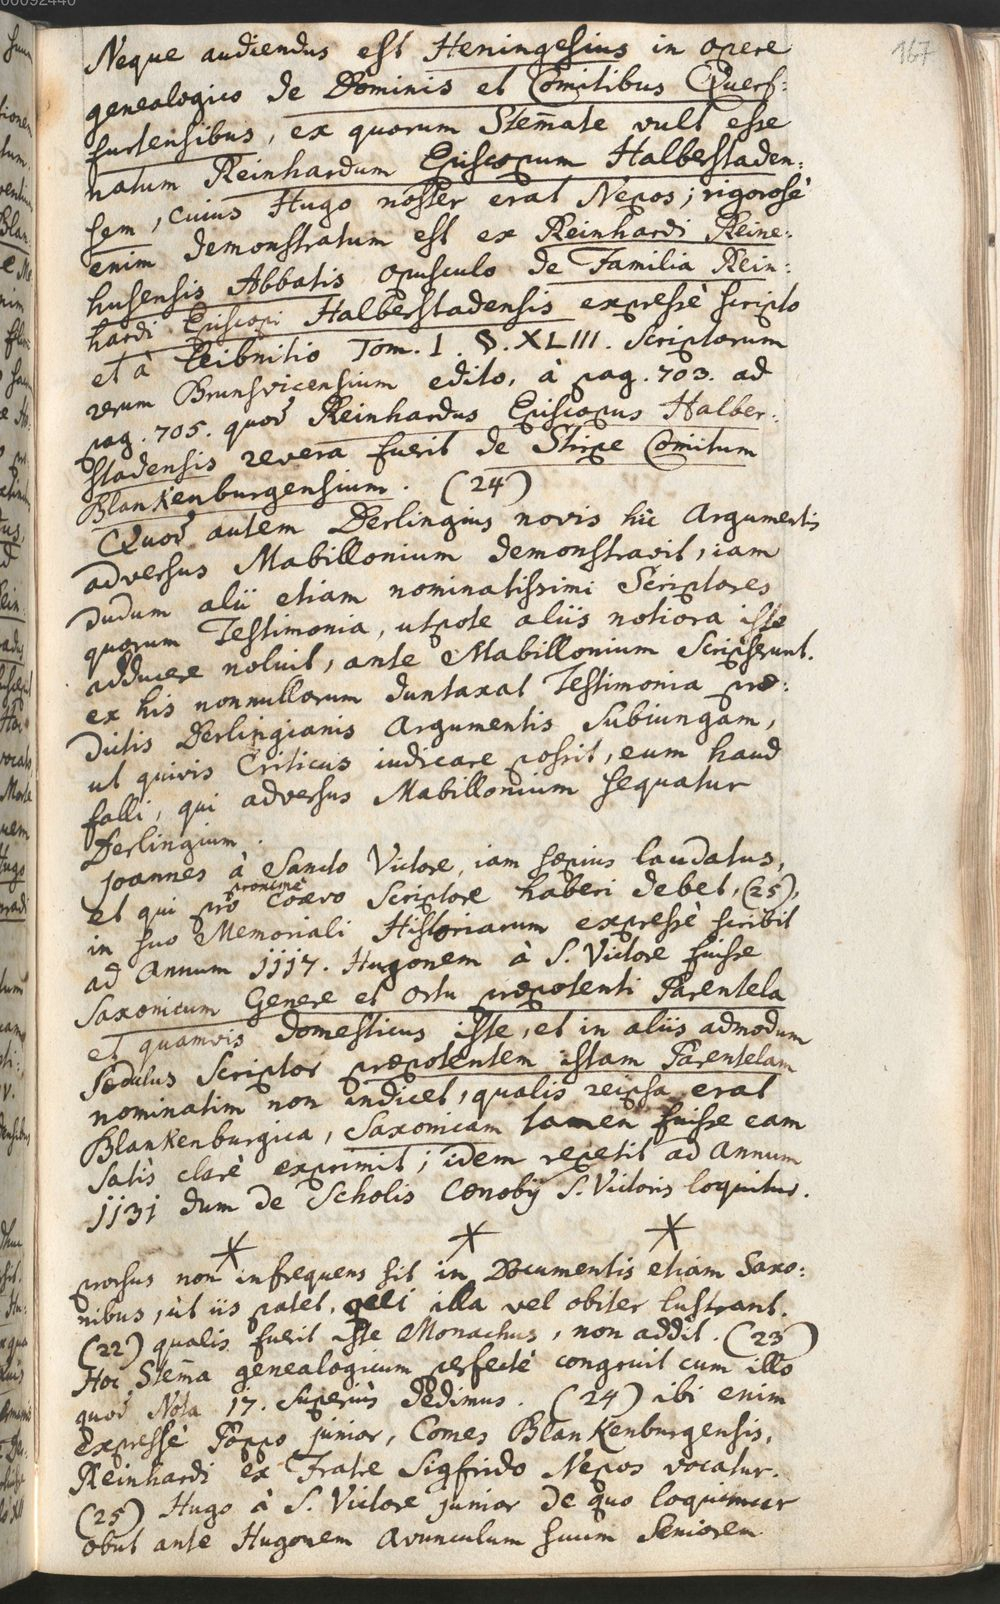 00092440
167
Neque audiendus est Heningesius in opere
genealogico de Dominis et Comitibus Querf:
furtensibus, ex quorum Stem̄ate vult esse
natum Reinhardum Episcopum Halberstaden:
sem, cuius Hugo noster erat Nepos; rigorosè
enim demonstratum est ex Reinhardi Reine:
husensis Abbatis opusculo de Familia Rein:
hardi Episcopi Halberstadensis expressè scripto
et à Leibnitio Tom. I. §. XLIII. Scriptorum
rerum Brunsvicensium edito, à pag. 703. ad
pag. 705. quod Reinhardus Episcopus Halber:
stadensis revera fuerit de Stirpe Comitum
Blankenburgensium. (24)
Quod autem Derlingius novis hic Argumentis
adversus Mabillonium demonstravit, iam
dudum alii etiam nominatissimi Scriptores
quorum Testimonia, utpote aliis notiora iste
adducere noluit, ante Mabillonium Scripserunt.
ex his nonnullorum duntaxat Testimonia præ:
dictis Derlingianis Argumentis Subiungam,
ut quivis Criticus iudicare possit, eum haud
falli, qui adversus Mabillonium sequatur
Derlingium.
Joannes à Sancto Victore, iam sæpius laudatus,
et qui pro proximè coævo Scriptore haberi debet, (25),
in suo Memoriali Historiarum expressè scribit
ad Annum 1117. Hugonem à S. Victore fuisse
Saxonicum Genere et ortu præpotenti Parentela
et quamvis domesticus iste, et in aliis admodum
Sedulus Scriptor præpotentem istam Parentelam
nominatim non indicet, qualis reipsa erat
Blankenburgica, Saxonicam tamen fuisse eam
satis clarè exprimit; idem repetit ad Annum
1131 dum de Scholis Cœnobij S. Victoris loquitur.
* * *
prorsus non infrequens sit in Documentis etiam Saxo:
nibus, ut iis patet, qui illa vel obiter lustrant.
(22) qualis fuerit iste Monachus, non addit. (23)
Hoc Stem̄a genealogicum perfectè congruit cum illo
quod Nota 17. Superiùs dedimus. (24) ibi enim
expressè Poppo junior, Comes Blankenburgensis,
Reinhardi ex Fratre Sigfrido Nepos vocatur.
(25) Hugo à S. Victore junior de quo loquimur
obiit ante Hugonem Avunculum suum Seniorem